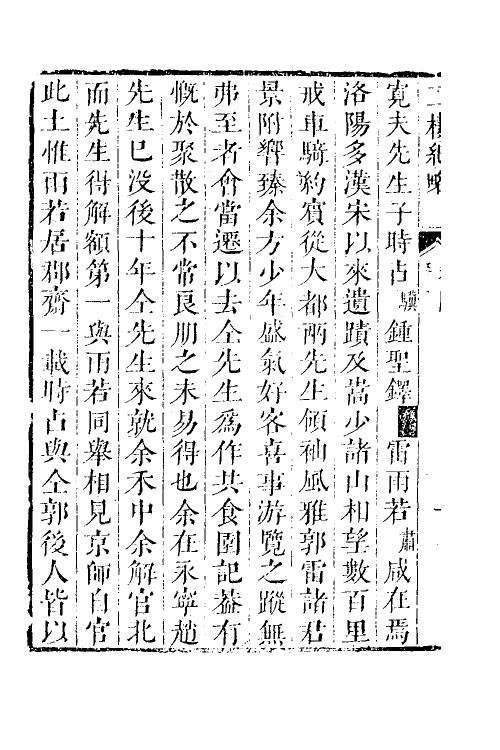 二樓紀略
寛夫先生子時占驥鍾聖鐸雷雨若肅咸在焉
洛陽多漢宋以來遺蹟及嵩少諸山相望數百里
戒車騎約賓從大都兩先生領袖風雅郭雷諸君
景附響臻余方少年盛氣好客喜事游覽之蹤無
弗至者會當遷以去仝先生爲作共食圖記葢有
慨於聚散之不常良朋之未易得也余在永寧趙
先生已没後十年仝先生來就余禾中余解官北
而先生得解額第一與雨若同舉相見京師自官
此土惟雨若居郡齋一載時占與仝郭後人皆以